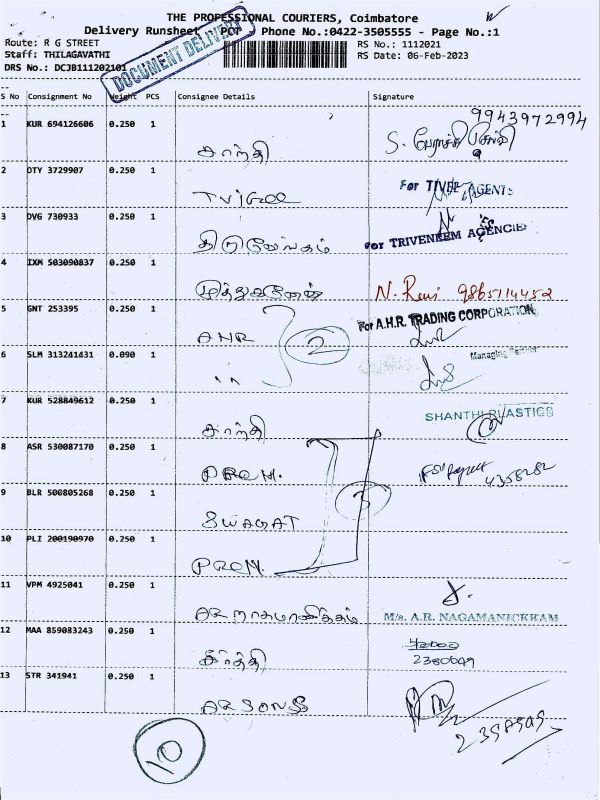 THE PROFESSIONAL COURIERS, Coimbatore
Delivery Runsheet POP Phone No.:0422-3505555 - Page No.:1
Route: R G STREET RS No.: 1112021
Staff: THILAGAVATHI RS Date: 06-Feb-2023
DRS No.: DCJB111202101
DOCUMENT DELIVERY
S No Consignment No Weight PCS Consignee Details Signature
9943972994
1 KUR 694126606 0.250 1 சாந்தி S.
2 DTY 3729907 0.250 1 For AGENTS
3 DVG 730933 0.250 1 திருவேங்கடம் For TRIVENKEM AGENCIES
4 IXM 503090837 0.250 1 N. Ravi 9865114452
5 GNT 253395 0.250 1 AHR For A.H.R. TRADING CORPORATION
2
6 SLM 313241431 0.090 1 Managing Partner
7 KUR 528849612 0.250 1 சாந்தி SHANTHI PLASTICS
8 ASR 530087170 0.250 1 PREM. 4358282
3
9 BLR 500805268 0.250 1 SWAGAT
10 PLI 200190970 0.250 1 PREM.
11 VPM 4925041 0.250 1 AR நாகமாணிக்கம் M/s. A.R. NAGAMANICKKAM
12 MAA 859083243 0.250 1 கீர்த்தி
2380049
13 STR 341941 0.250 1
10